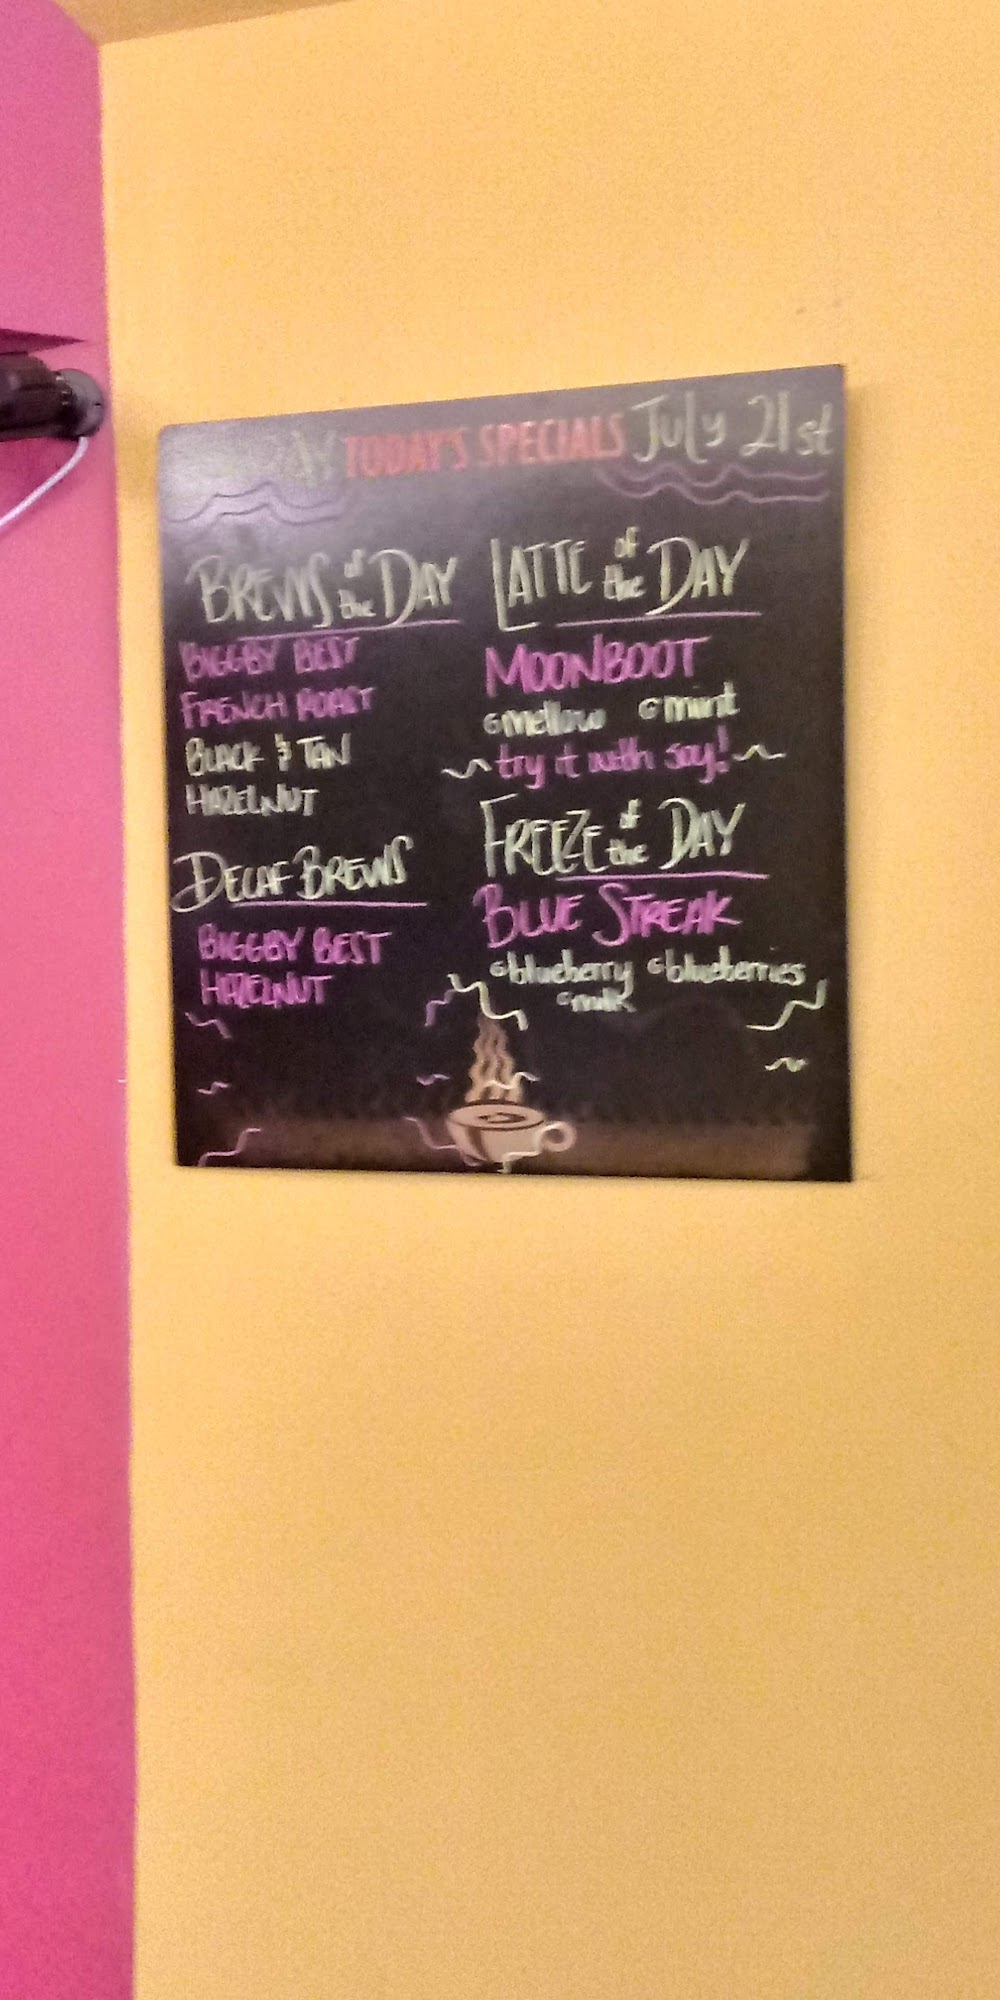 TODAY'S SPECIALS July 21st
BREWS of the DAY
BIGGBY BEST
FRENCH ROAST
BLACK & TAN
HAZELNUT
DECAF BREWS
BIGGBY BEST
HAZELNUT
LATTE of the DAY
MOONBOOT
mellow mint
~try it with soy!~
FREEZE of the DAY
BLUE STREAK
blueberry blueberries
milk